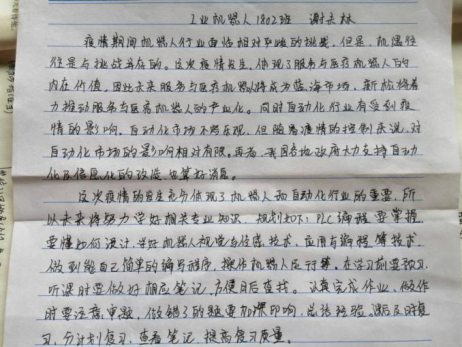 工业机器人1802班 谢长林
疫情期间机器人行业面临相对严峻的挑战,但是,机遇往
往是与挑战并存的。这次疫情发生,体现了服务与医疗机器人的
内在价值,因此未来服务与医疗机器人将成为蓝海市场,新松将着
力推动服务与医疗机器人的产业化。同时自动化行业有受到疫
情的影响,自动化市场不容乐观,但随着疫情的控制来说,对
自动化市场的影响相对有限。再者,我国各地政府大力支持自动
化及信息化的改造,也算好消息。
这次疫情的发生充分体现了机器人和自动化行业的重要,所
以未来将努力学好相关专业知识,规划如下:PLC编程要掌握
要懂如何设计,学好机器人视觉与传感技术,应用与编程等技术,
做到能自己简单的编写程序,操作机器人运行等。在学习前要预习,
听课时要做好相应笔记,方便日后查找。认真完成作业,做作
时要注意审题,做错了的题要加深印响,总结经验。课后及时复
习,分计划复习,查看笔记,提高复习质量。